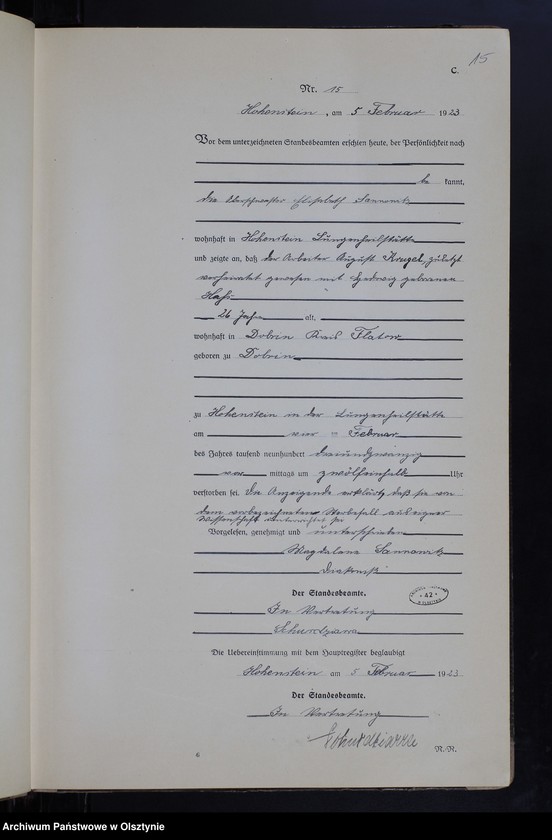 15
C.
Nr. 15
Hohenstein, am 5 Februar 1923
Vor dem unterzeichneten Standesbeamten erschien heute, der Persönlichkeit nach
be kannt,
die Oberschwester Elisabeth
wohnhaft in Hohenstein Lungenheilstätte
und zeigte an, daß der Arbeiter August Krugel, zuletzt
verheiratet gewesen mit Hedwig geborenen
26 Jahre alt,
wohnhaft in Dobrin Kreis Flatow
geboren zu Dobrin
zu Hohenstein in der Lungenheilstätte
am vier Februar
des Jahres tausend neunhundert dreiundzwanzig
vor mittags um zwölfeinhalb Uhr
verstorben sei. Die Anzeigende erklärte, daß sie von
dem vorbezeichneten Sterbefall aus eigner
Wissenschaft unterrichtet sei
Vorgelesen, genehmigt und unterschrieben
Magdalene
Der Standesbeamte.
In Vertretung
42
Die Uebereinstimmung mit dem Hauptregister beglaubigt
Hohenstein am 5 Februar 1923
Der Standesbeamte.
In Vertretung
6
Archiwum Państwowe w Olsztynie